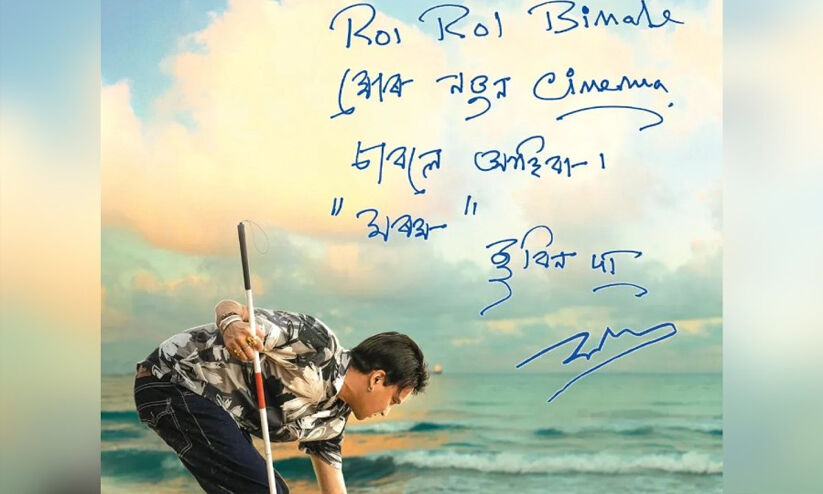 Roi Roi Binale
মোৰ নতুন Cinema.
চাবলৈ আহিবা।
"মৰম"
জুবিন দা